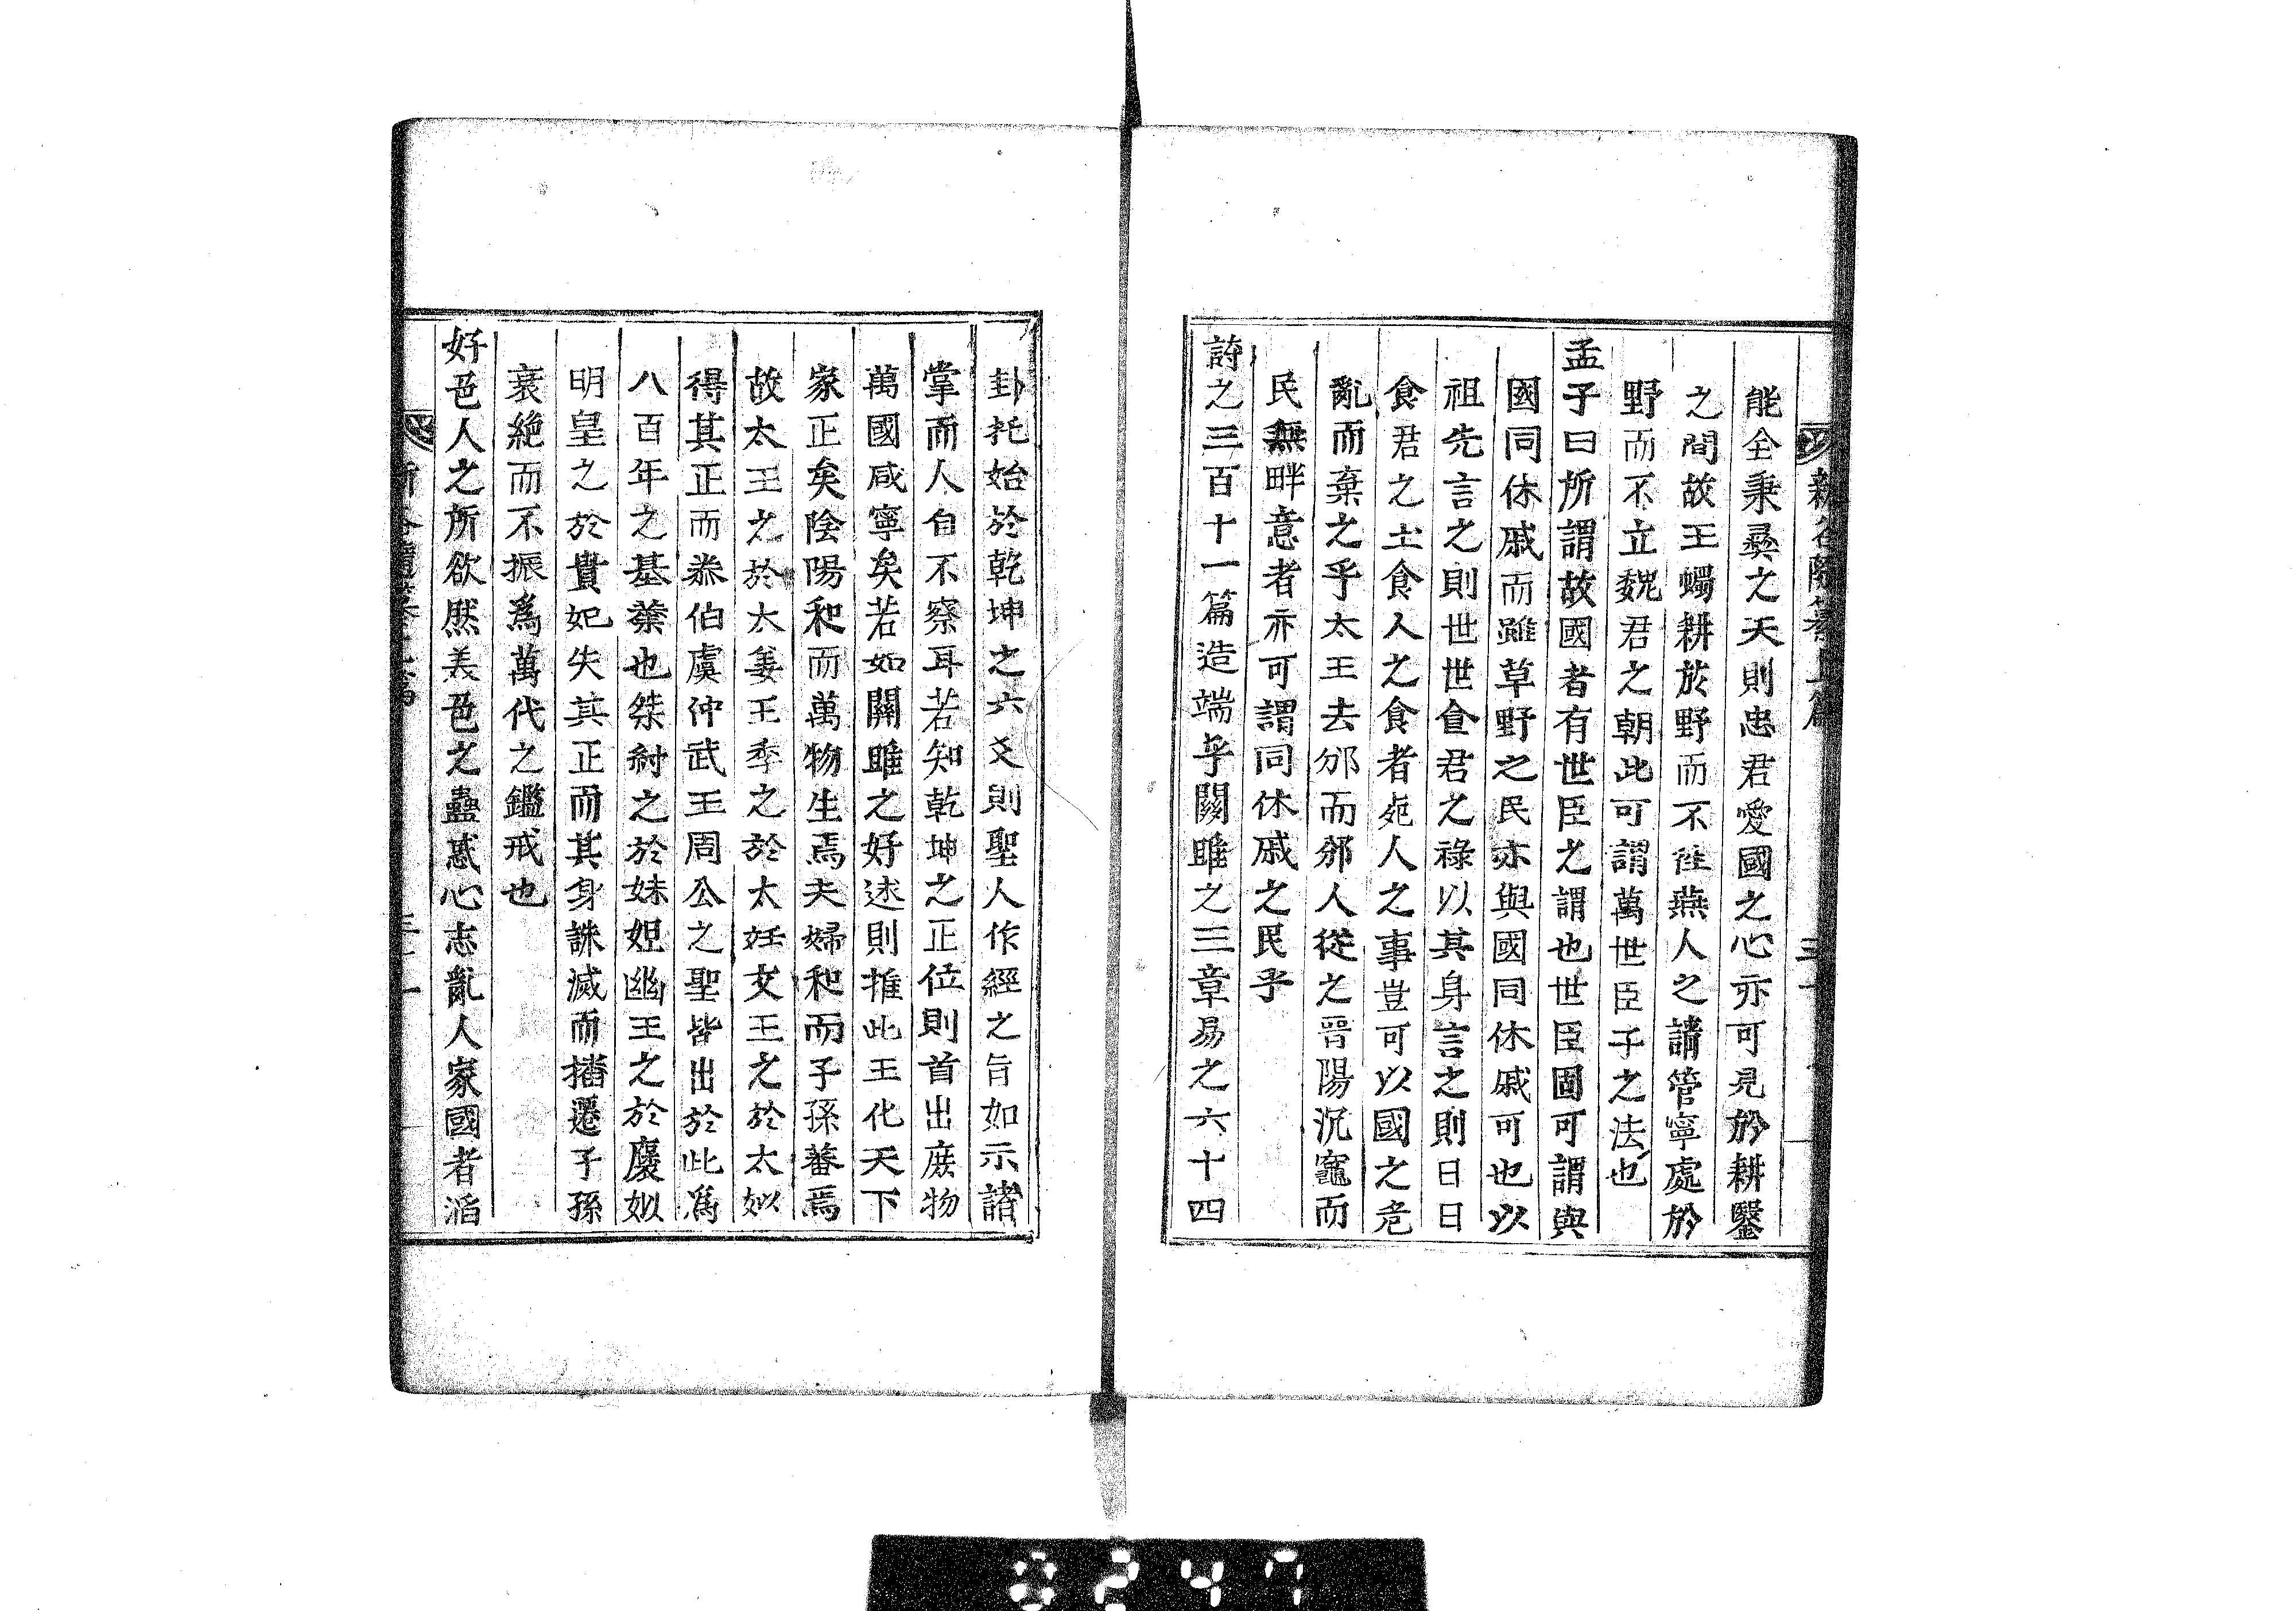 能全秉彛之天則忠君愛國之心亦可見於耕鑿
之間故王蠋耕於野而不從燕人之請管寧處於
野而不立魏君之朝此可謂萬世臣子之法也
孟子曰所謂故國者有世臣之謂也世臣固可謂與
國同休戚而雖草野之民亦與國同休戚可也以
祖先言之則世世食君之祿以其身言之則日日
食君之土食人之食者死人之事豈可以國之危
亂而棄之乎太王去邠而邠人從之晉陽沉竈而
民無畔意者亦可謂同休戚之民乎
詩之三百十一篇造端乎關雎之三章易之六十四
卦托始於乾坤之六爻則聖人作經之旨如示諸
掌而人自不察耳若知乾坤之正位則首出庶物
萬國咸寧矣若如關雎之好逑則推此王化天下
家正矣陰陽和而萬物生焉夫婦和而子孫蕃焉
故太王之於太姜王季之於太妊文王之於太姒
得其正而泰伯虞仲武王周公之聖皆出於此爲
八百年之基業也桀紂之於妹妲幽王之於褒姒
明皇之於貴妃失其正而其身誅滅而播遷子孫
衰絶而不振爲萬代之鑑戒也
好色人之所欲然美色之蠱惑心志亂人家國者滔